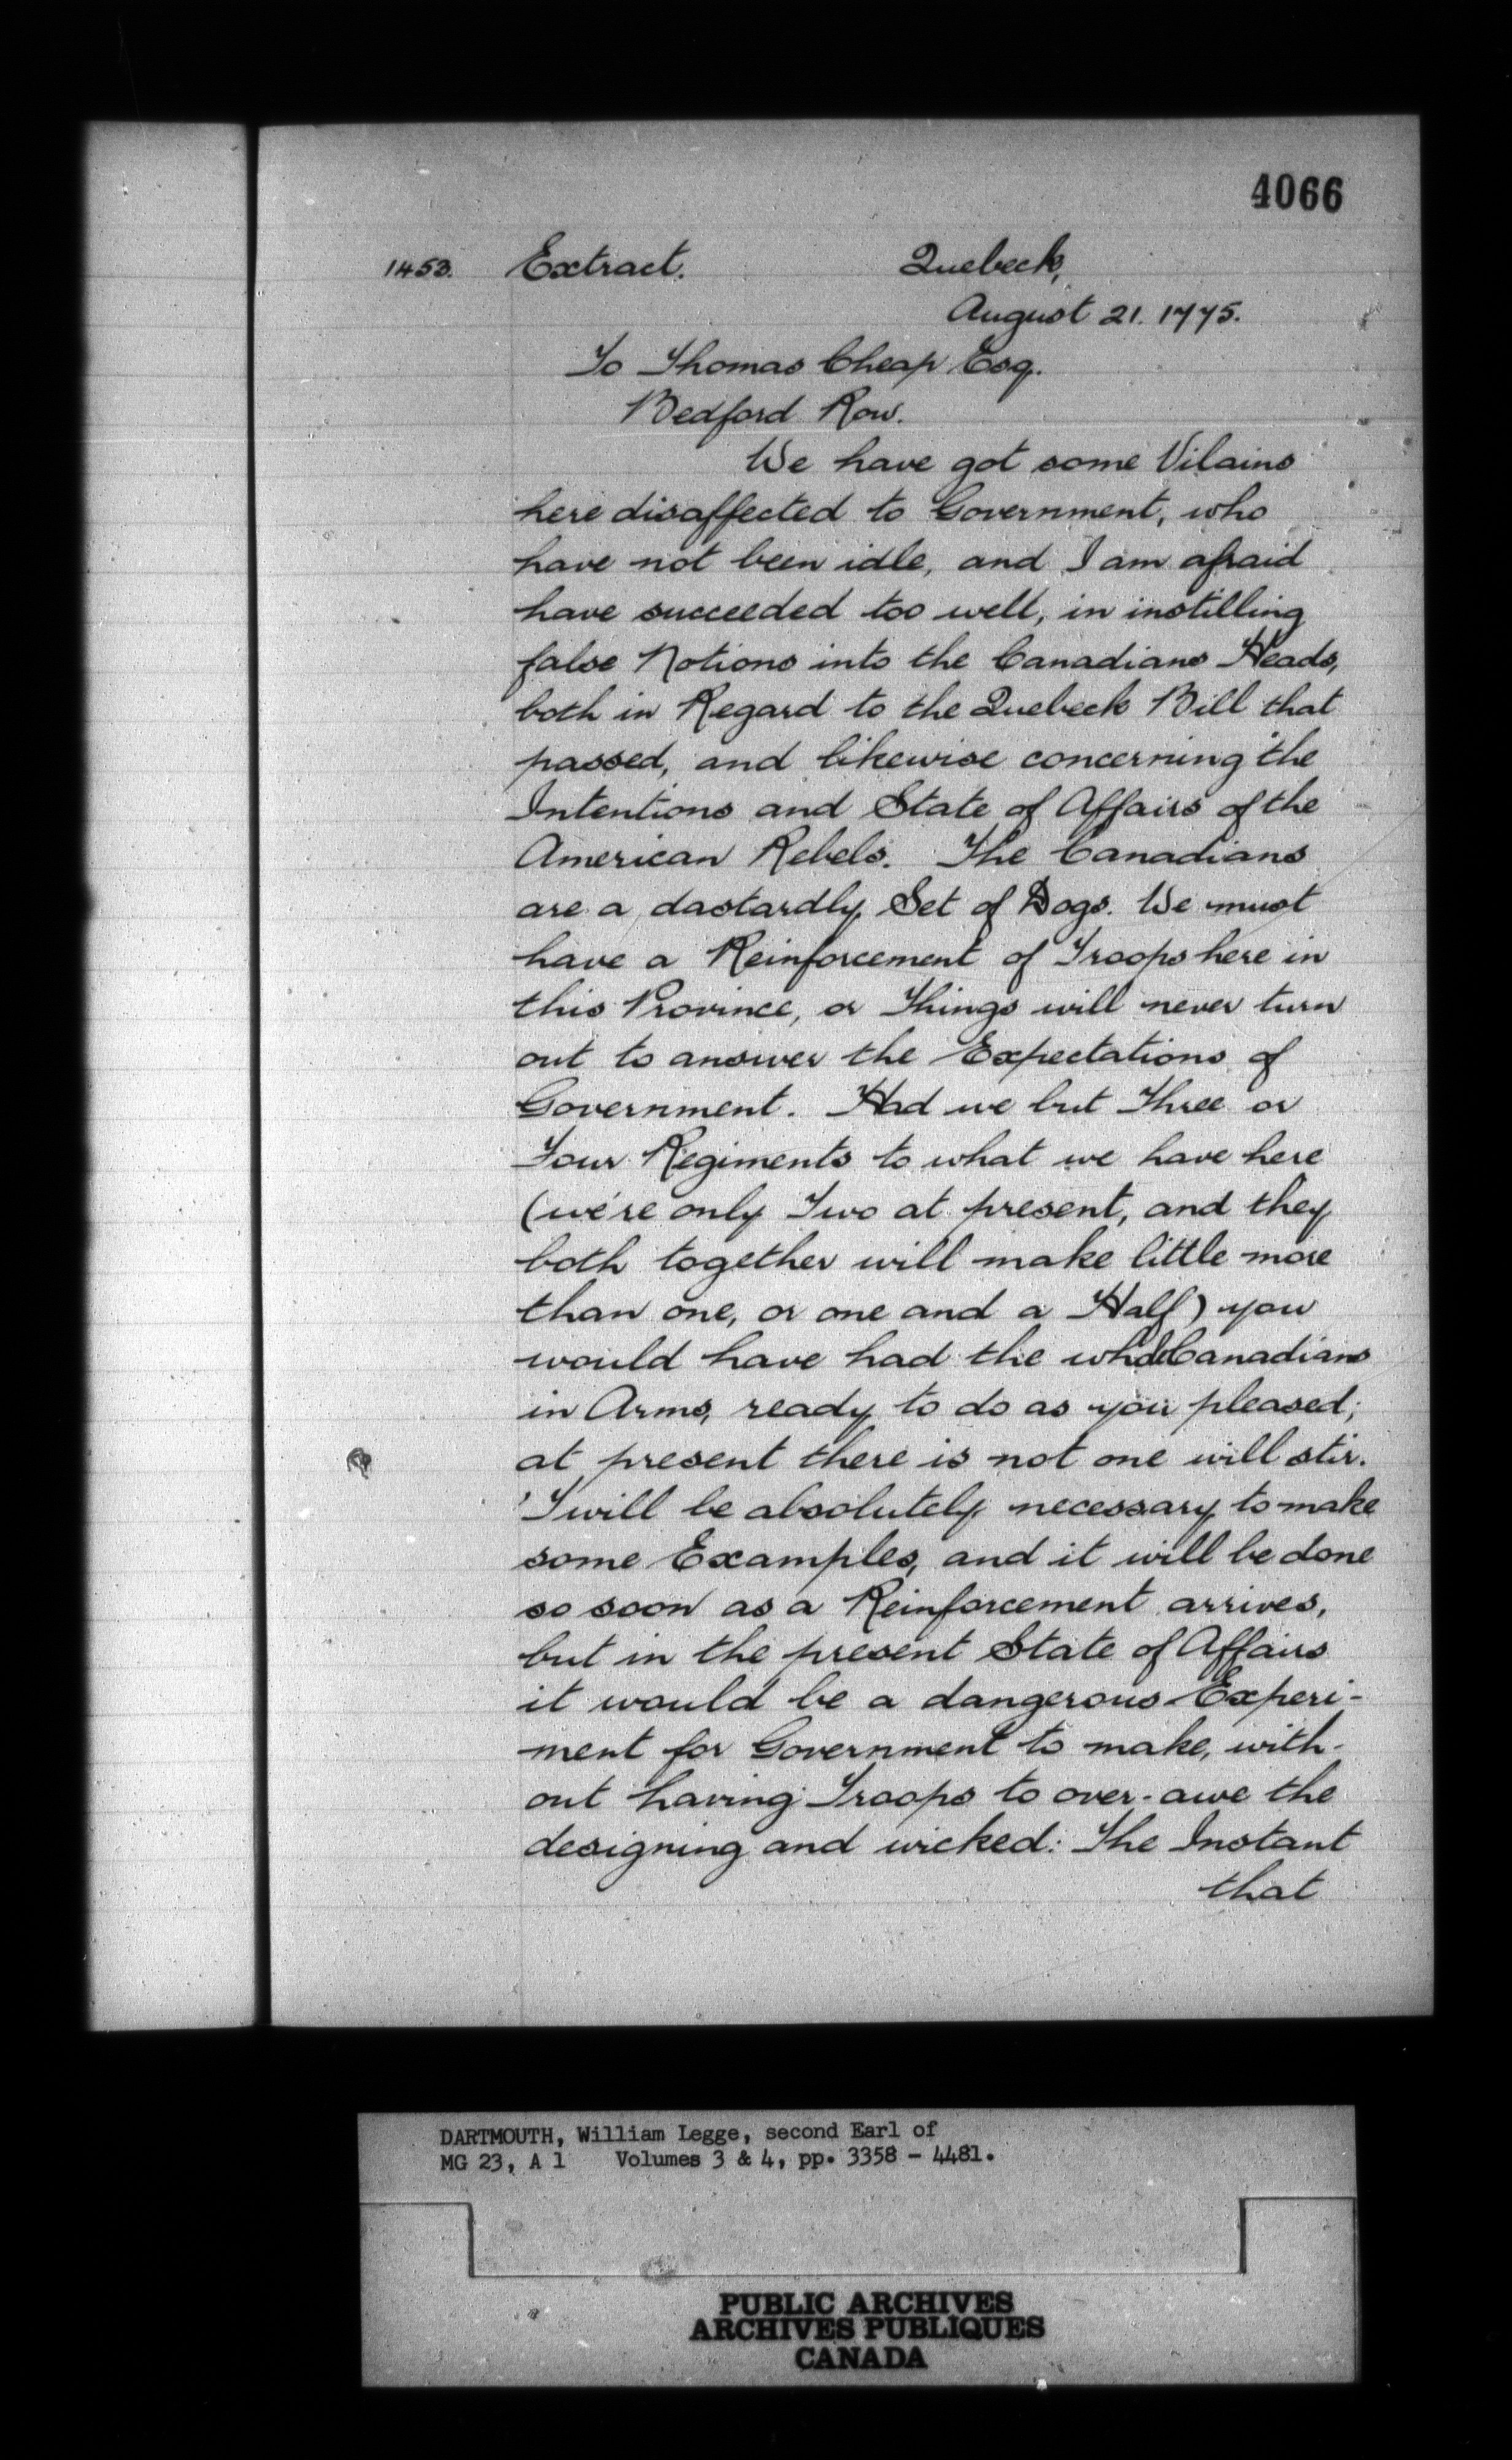 4066
1453. Extract. Quebeck,
August 21. 1775.
To Thomas Cheap Esq.
Bedford Row.
We have got some Vilains
here disaffected to Government, who
have not been idle, and I am afraid
have succeeded too well, in instilling
false Notions into the Canadians Heads,
both in Regard to the Quebeck Bill that
passed, and likewise concerning the
Intentions and State of Affairs of the
American Rebels. The Canadians
are a dastardly Set of Dogs. We must
have a Reinforcement of Troops here in
this Province, or Things will never turn
out to answer the Expectations of
Government. Had we but Three or
Four Regiments to what we have here
(we're only Two at present, and they
both together will make little more
than one, or one and a Half) you
would have had the whole Canadians
in Arms, ready to do as you pleased;
at present there is not one will stir.
'Twill be absolutely necessary to make
some Examples, and it will be done
so soon as a Reinforcement arrives,
but in the present State of Affairs
it would be a dangerous Experi-
ment for Government to make, with-
out having Troops to over-awe the
designing and wicked: The Instant
that
DARTMOUTH, William Legge, second Earl of
MG 23, A 1 Volumes 3 & 4, pp. 3358 - 4481.
PUBLIC ARCHIVES
ARCHIVES PUBLIQUES
CANADA